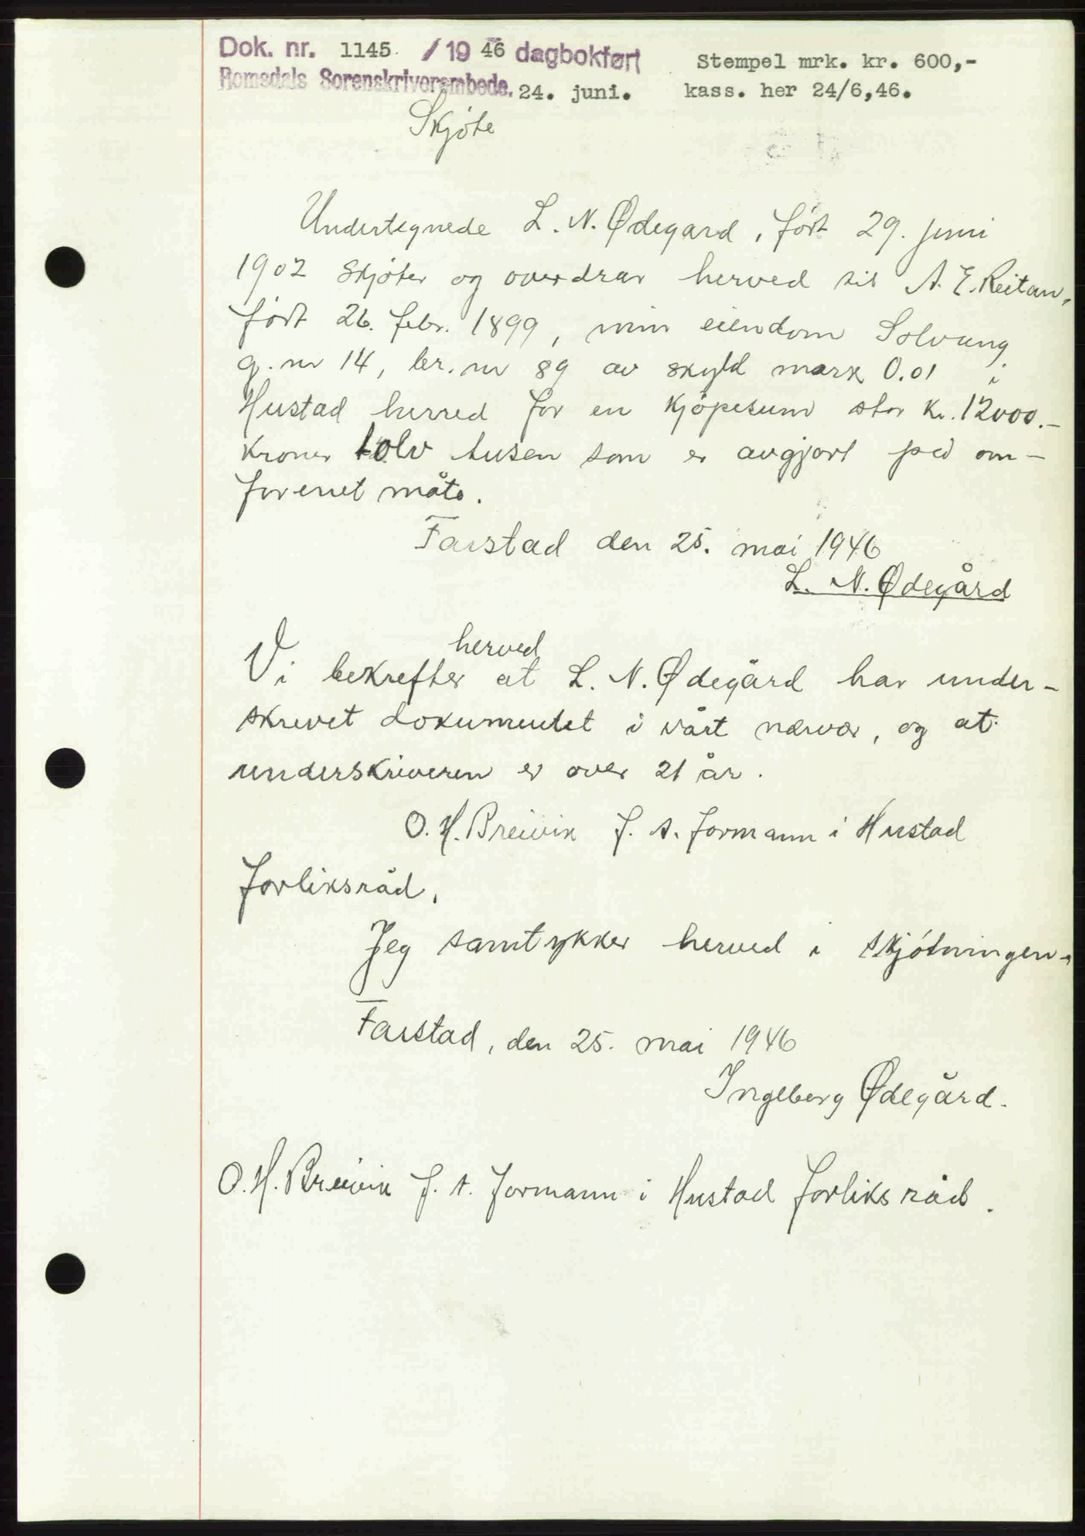 Dok. nr. 1145 / 19 46 dagbokført
Romsdals Sorenskriverembede. 24. juni.
Stempel mrk. kr. 600,-
kass. her 24/6,46.
Skjøte
Undertegnede L. N. Ødegard, født 29. juni
1902 skjøter og overdrar herved til A. E. Reitan,
født 26. febr. 1899, min eiendom Solvang
g. nr 14, br. nr 89 av skyld mark 0.01 i
Hustad herred for en kjøpesum stor kr. 12000.-
kroner tolv tusen som er avgjort på om-
forenet måte.
Farstad den 25. mai 1946
L. N. Ødegård
herved
Vi bekrefter at L. N. Ødegård har under-
skrevet dokumentet i vårt nærvær, og at
underskriveren er over 21 år.
O. H. Breivik f. t. formann i Hustad
forliksråd.
Jeg samtykker herved i skjøtningen.
Farstad, den 25. mai 1946
Ingeberg Ødegård.
O. H. Breivik f. t. formann i Hustad forliksråd.